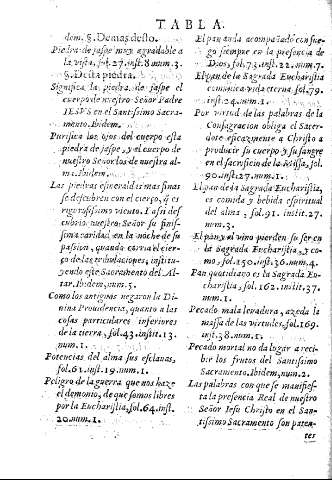 TABLA
dem. §. Demas desto.
Piedra de jaspe muy agradable a
la vista, fol. 27. inst. 8. num. 3.
§. Desta piedra.
Significa la piedra de jaspe el
cuerpo de nuestro Señor Padre
IESVS en el Santissimo Sacra-
mento. Ibidem.
Purifica los ojos del cuerpo esta
piedra de jaspe, y el cuerpo de
nuestro Señor los de nuestra al-
ma. Ibidem.
Las piedras esmeraldas mas finas
se descubren con el cierço, q̃ es
rigurosissimo viento. Y assi des
cubrio nuestro Señor su finis-
sima caridad en la noche de su
passion, quando corria el cier-
ço de las tribulaciones, institu-
yendo este Sacramento del Al-
tar. Ibidem, num. 5.
Como los antiguos negaron la Di-
uina Prouidencia, quanto a las
cosas particulares inferiores
de la tierra, fol. 43. instit. 13.
num. 1.
Potencias del alma sus esclauas,
fol. 61. inst. 19. num. 1.
Peligro de la guerra que nos haze
el demonio, de que somos libres
por la Eucharistia, fol. 64. inst.
20. num. 1.
El pan anda acompañado con fue-
go siempre en la presencia de
Dios, fol. 73. inst. 22. num. 7.
El pan de la Sagrada Eucharistia
comunica vida eterna, fol. 79.
inst. 24. num. 1.
Por virtud de las palabras de la
Consagracion obliga el Sacer-
dote eficazmente a Christo a
producir su cuerpo y su sangre
en el sacrificio de la Missa, fol.
90. inst. 27. num. 1.
El pan de la Sagrada Eucharistia,
es comida y bebida espiritual
del alma, fol. 91. instit. 27.
num. 3.
El pan y el vino pierden su ser en
la Sagrada Eucharistia, y co-
mo, fol. 150. inst. 36. num. 4.
Pan quotidiano es la Sagrada Eu-
charistia, fol. 162. instit. 37.
num. 1.
Pecado mala leuadura, azeda la
massa de las virtudes, fol. 169.
inst. 38. num. 1.
Pecado mortal no da lugar a reci-
bir los frutos del Santissimo
Sacramento. Ibidem, num. 2.
Las palabras con que se manifies-
ta la presencia Real de nuestro
Señor Iesu Christo en el San-
tissimo Sacramento son paten-
tes